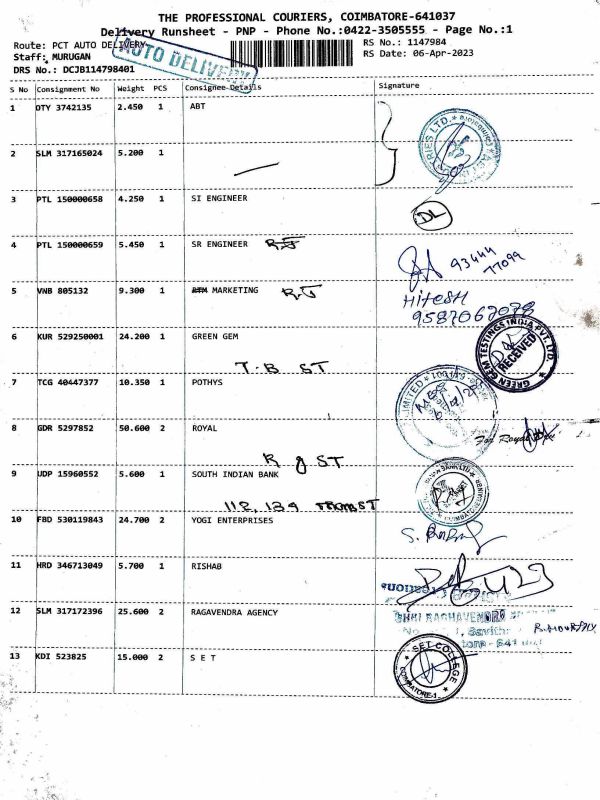 THE PROFESSIONAL COURIERS, COIMBATORE-641037
Delivery Runsheet - PNP - Phone No.:0422-3505555 - Page No.:1
Route: PCT AUTO DELIVERY
RS No.: 1147984
Staff: MURUGAN
RS Date: 06-Apr-2023
DRS No.: DCJB114798401
AUTO DELIVERY
S No Consignment No Weight PCS Consignee Details Signature
1 OTY 3742135 2.450 1 ABT
2 SLM 317165024 5.200 1
3 PTL 150000658 4.250 1 SI ENGINEER
DL
4 PTL 150000659 5.450 1 SR ENGINEER
93444
77099
5 VNB 805132 9.300 1 MARKETING
Hitesh
9587062078
6 KUR 529250001 24.200 1 GREEN GEM
GREEN GEM TESTINGS INDIA PVT. LTD.
RECEIVED
T.B ST
7 TCG 40447377 10.350 1 POTHYS
LIMITED
8 GDR 5297852 50.600 2 ROYAL
For Royal
R G ST
9 UDP 15960552 5.600 1 SOUTH INDIAN BANK
10 FBD 530119843 24.700 2 YOGI ENTERPRISES
11 HRD 346713049 5.700 1 RISHAB
12 SLM 317172396 25.600 2 RAGAVENDRA AGENCY
SHRI RAGHAVENDRA
13 KDI 523825 15.000 2 S E T
SET COLLEGE
COIMBATORE-1